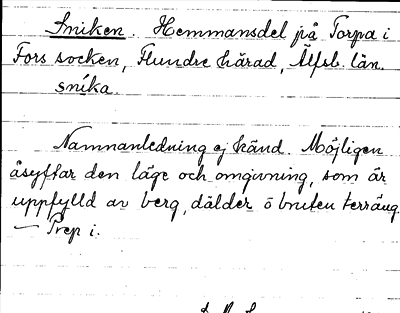 Sniken. Hemmansdel på Torpa i
Fors socken, Flundre härad, Älfsb. län.
snika
Namnanledning ej känd. Möjligen
åsyftar den läge och omgivning, som är
uppfylld av berg, dälder o bruten terräng
— Prep i.